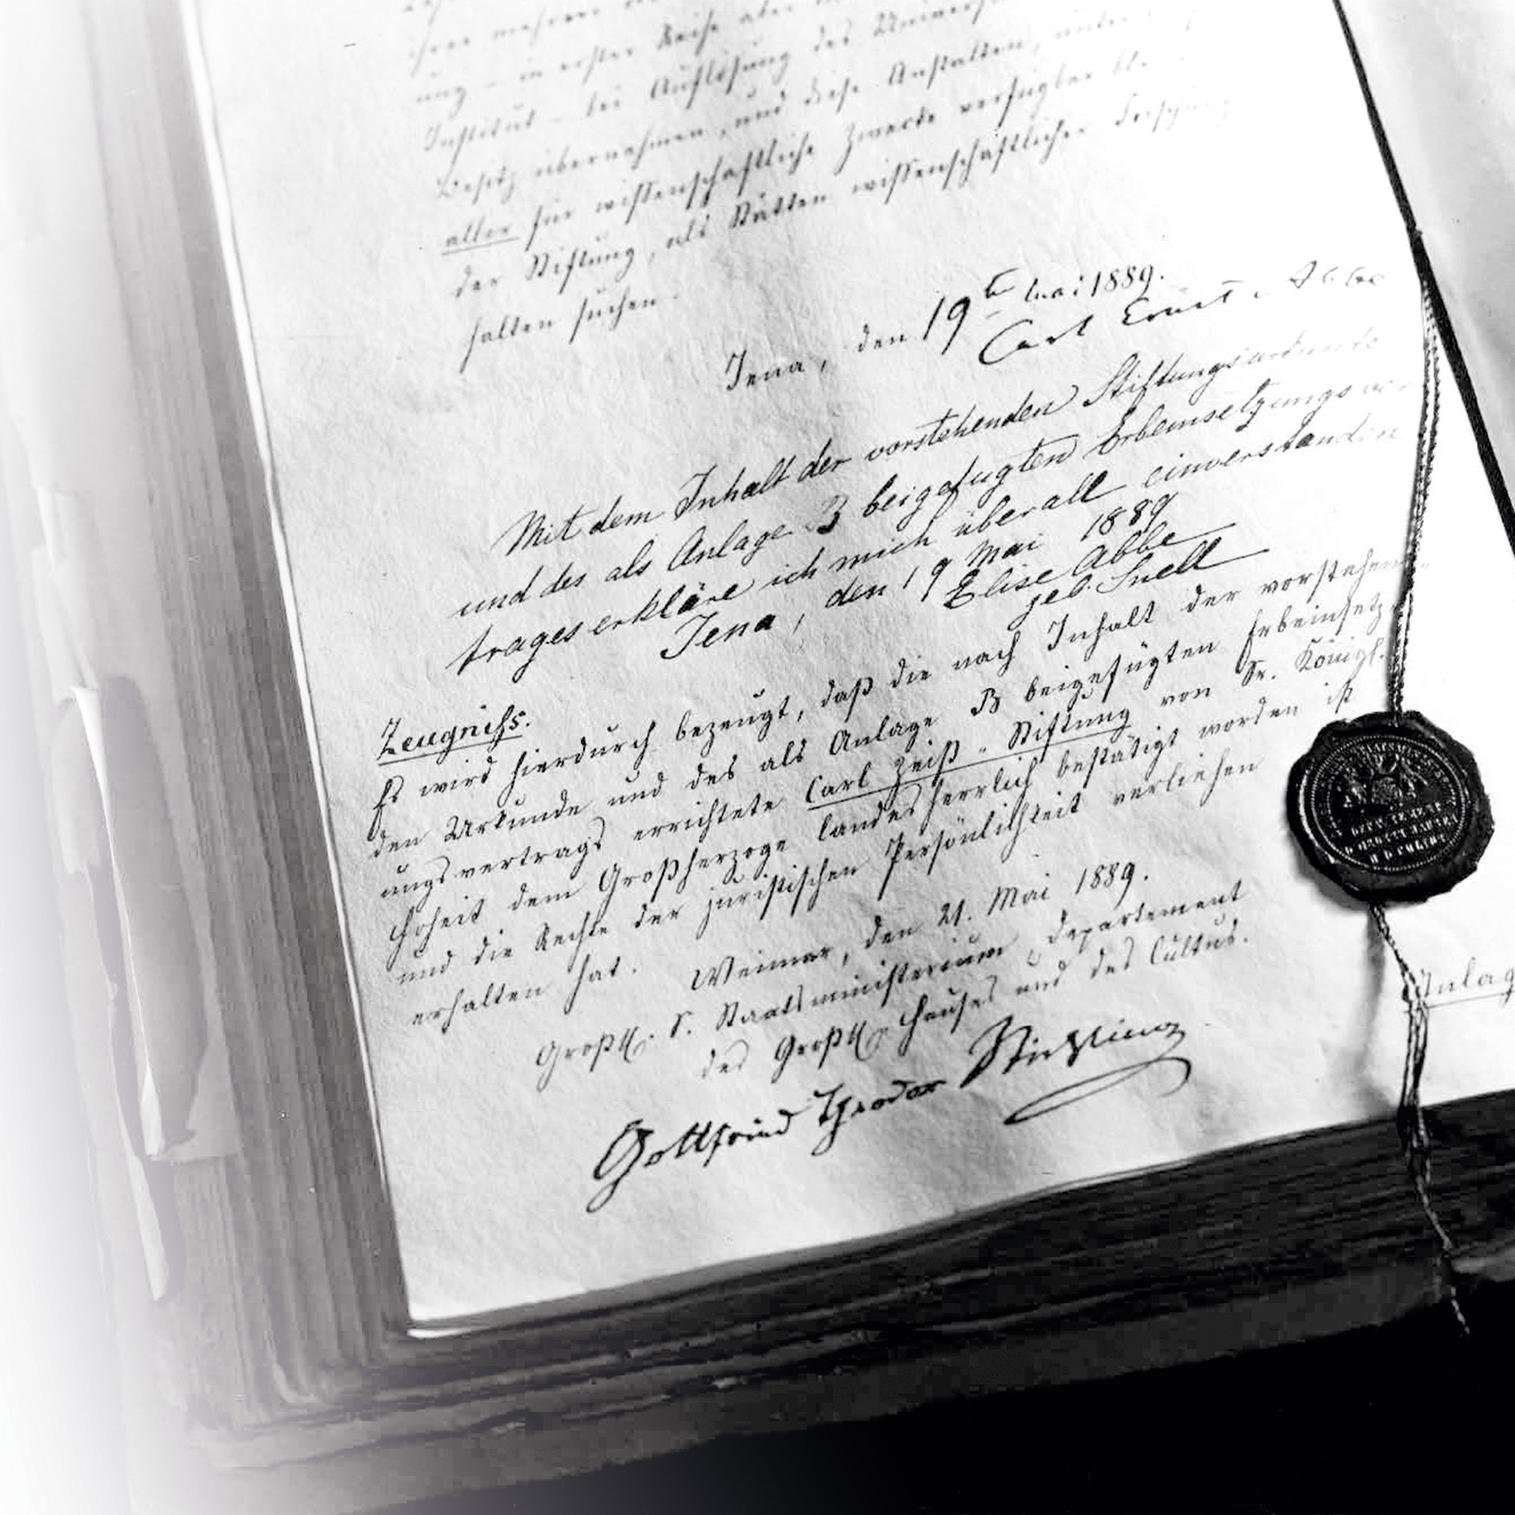 ung – in erster Reihe aber
Institut – bei Auflösung des
Besitz übernehmen, und diese Anstalten, unter
aller für wissenschaftliche Zwecke verfügbar
der Stiftung, als Stätten wissenschaftlicher
halten suchen.
Jena, den 19ten Mai 1889.
Carl Ernst Abbe
Mit dem Inhalt der vorstehenden Stiftungsurkunde
und des als Anlage B beigefugten Erbeinsetzungsver-
trages erkläre ich mich überall einverstanden
Jena, den 19 Mai 1889
Elise Abbe
geb. Snell
Zeugniß.
Es wird hierdurch bezeugt, daß die nach Inhalt der vorstehen-
den Urkunde und des als Anlage B beigefügten Erbeinsetz-
ungsvertrags errichtete Carl Zeiß-Stiftung von Sr. Königl.
Hoheit dem Großherzoge landesherrlich bestätigt worden ist
und die Rechte der juristischen Persönlichkeit verliehen
erhalten hat.
Weimar, den 21. Mai 1889.
Großh. S. Staatsministerium, Departement
des Großh. Hauses und des Cultus.
Gottfried Theodor Stichling
Anlag